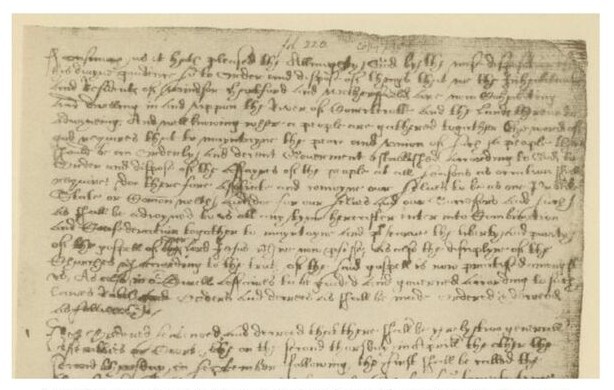 fol 220
as it hath pleased the Allmighty God by the wise
his diuyne pruidence so to Order and dispose of things that we the Inhabitants
and Residents of Windsor Harteford and Wethersfield are now Cohabiting
and dwelling in and vppon the River of Conectecotte and the Lands
adioyneing; And well knowing where a people are gathered togather the word of
requires that to mayntayne the peace and vnion of such a people
should be an Orderly and decent Gouerment established according to God, to
Order and dispose of the affayres of the people at all seasons as occation shall
require; doe therefore assotiate and conioyne our selues to be as one
State or Comonwelth; and doe, for our selues and our Successors and such
as shall be adioyned to vs att any tyme hereafter enter into Combination
and Confederation togather to mayntayne and presearue the liberty and purity
of the gospell of our Lord Jesus we now as also the disciplyne of the
Churches according to the truth of the said gospell is now practised amongst
vs; As also in Ciuell Affaires to be guided and gouerned according to such
Lawes Rules Orders and decrees as shall be made ordered & decreed
as followeth
It is Ordered sentenced and decreed that there shall be yerely two generall
Assemblies or Courts, the on the second thursday in Aprill, the other the
second thursday in September following, the first shall be called the